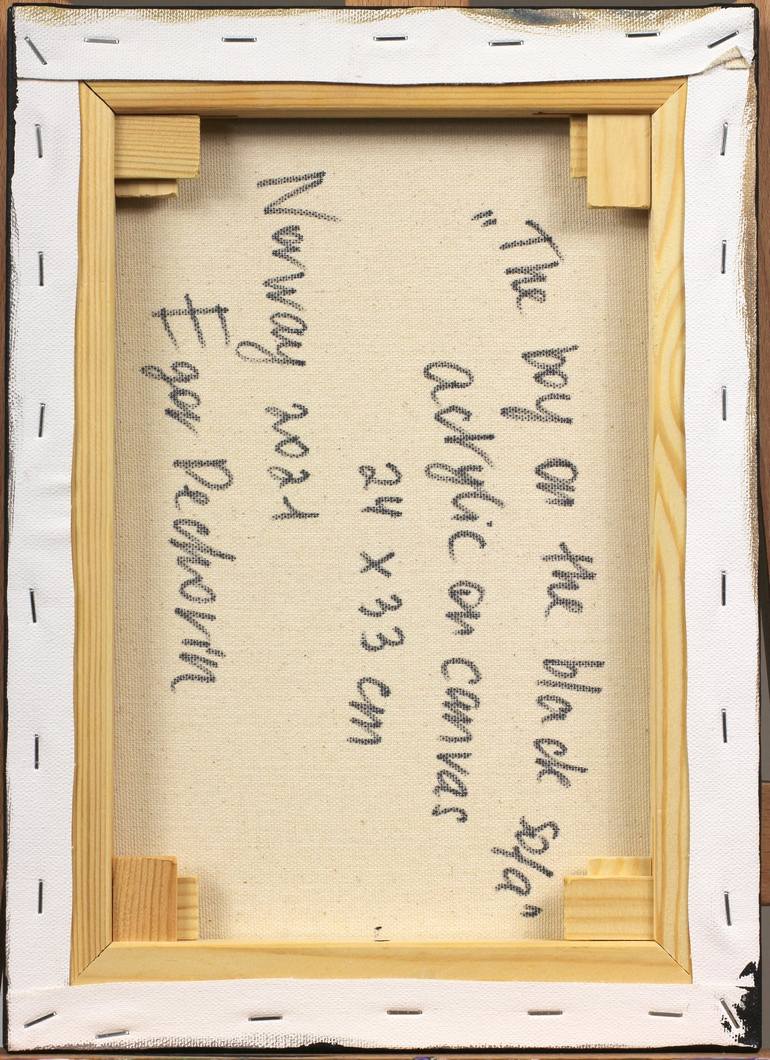 "The boy on the black sofa"
acrylic on canvas
24 x 33 cm
Norway 2021
Egor